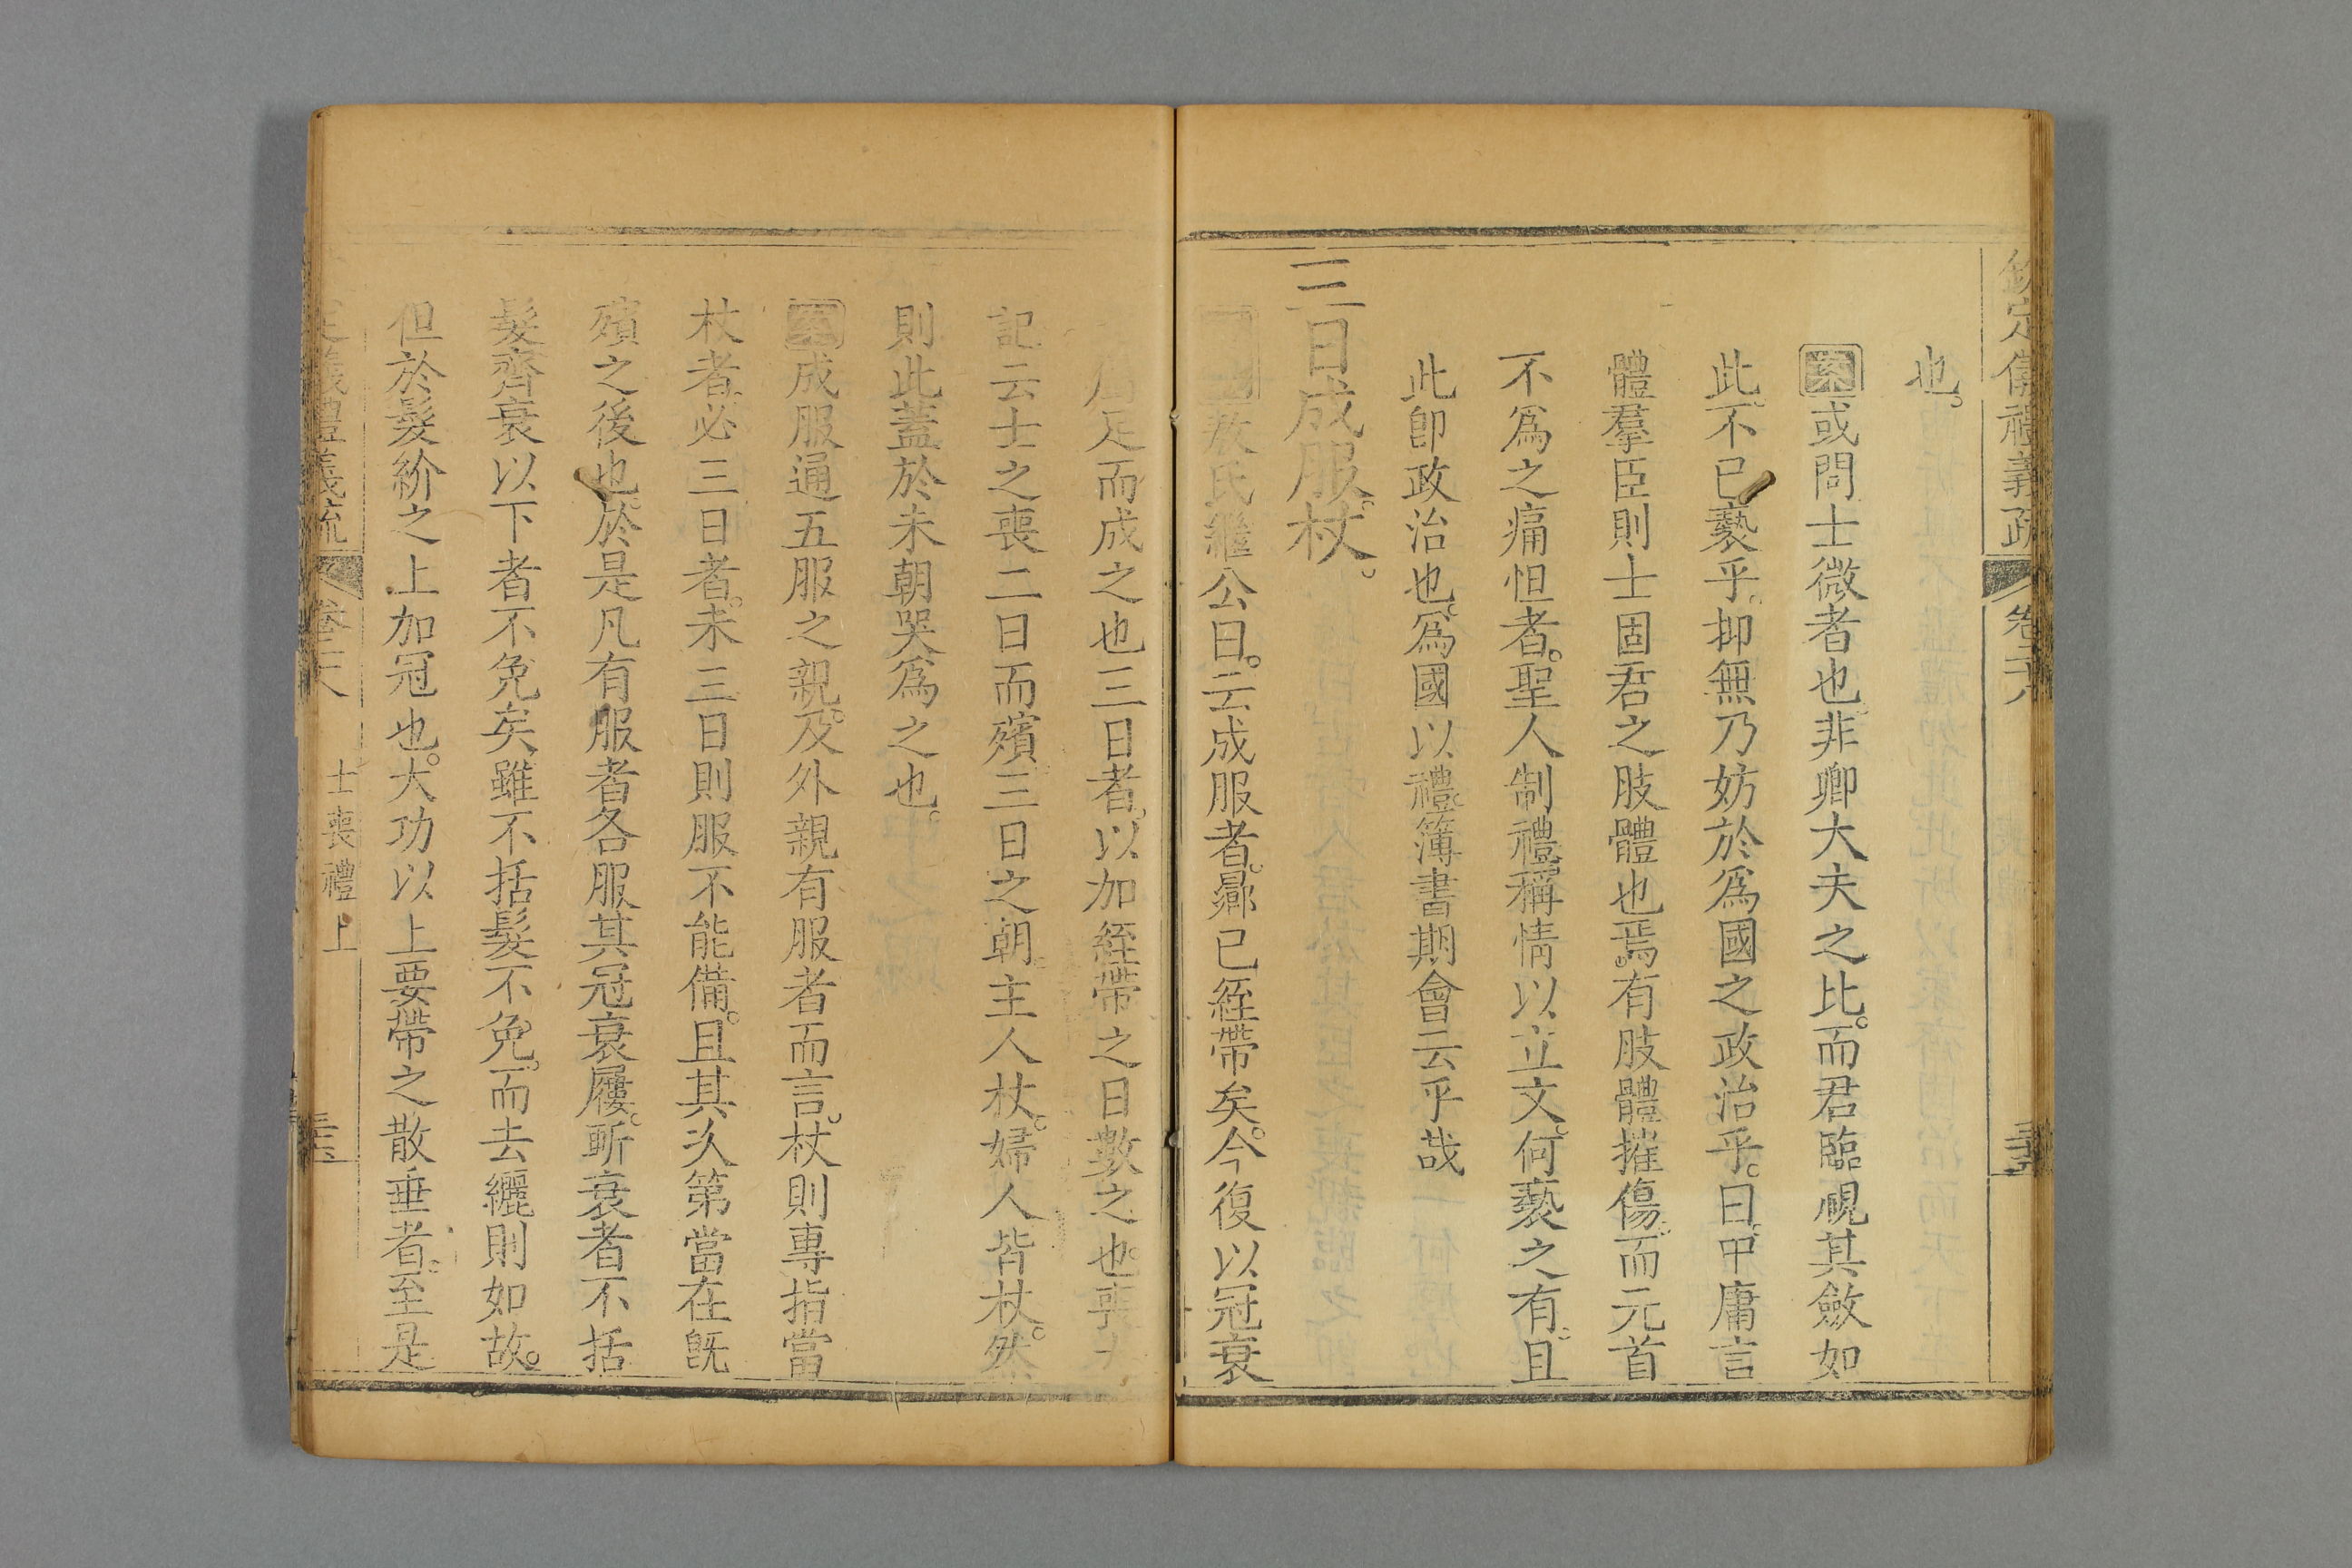 欽定儀禮義疏 卷二十八
也。
案或問士微者也非卿大夫之比。而君臨視其斂如
此。不已褻乎。抑無乃妨於爲國之政治乎。曰。中庸言
體羣臣則士固君之肢體也。焉有肢體摧傷。而元首
不爲之痛怛者。聖人制禮。稱情以立文。何褻之有。且
此卽政治也。爲國以禮。簿書期會云乎哉
三日成服。杖。
敖氏繼公曰。云成服者。曏已絰帶矣。今復以冠衰
屨足而成之也三日者。以加絰帶之日數之也。喪大
記云士之喪二日而殯三日之朝。主人杖。婦人皆杖。然
則此蓋於未朝哭爲之也。
案成服通五服之親。及外親有服者而言。杖則專指當
杖者。必三日者。未三日則服不能備。且其次第當在旣
殯之後也。於是凡有服者各服其冠衰屨。斬衰者不括
髮齊衰以下者不免矣。雖不括髮不免。而去纚則如故。
但於髮紒之上加冠也。大功以上要帶之散垂者。至是
定儀禮義疏 卷二十八 士喪禮上